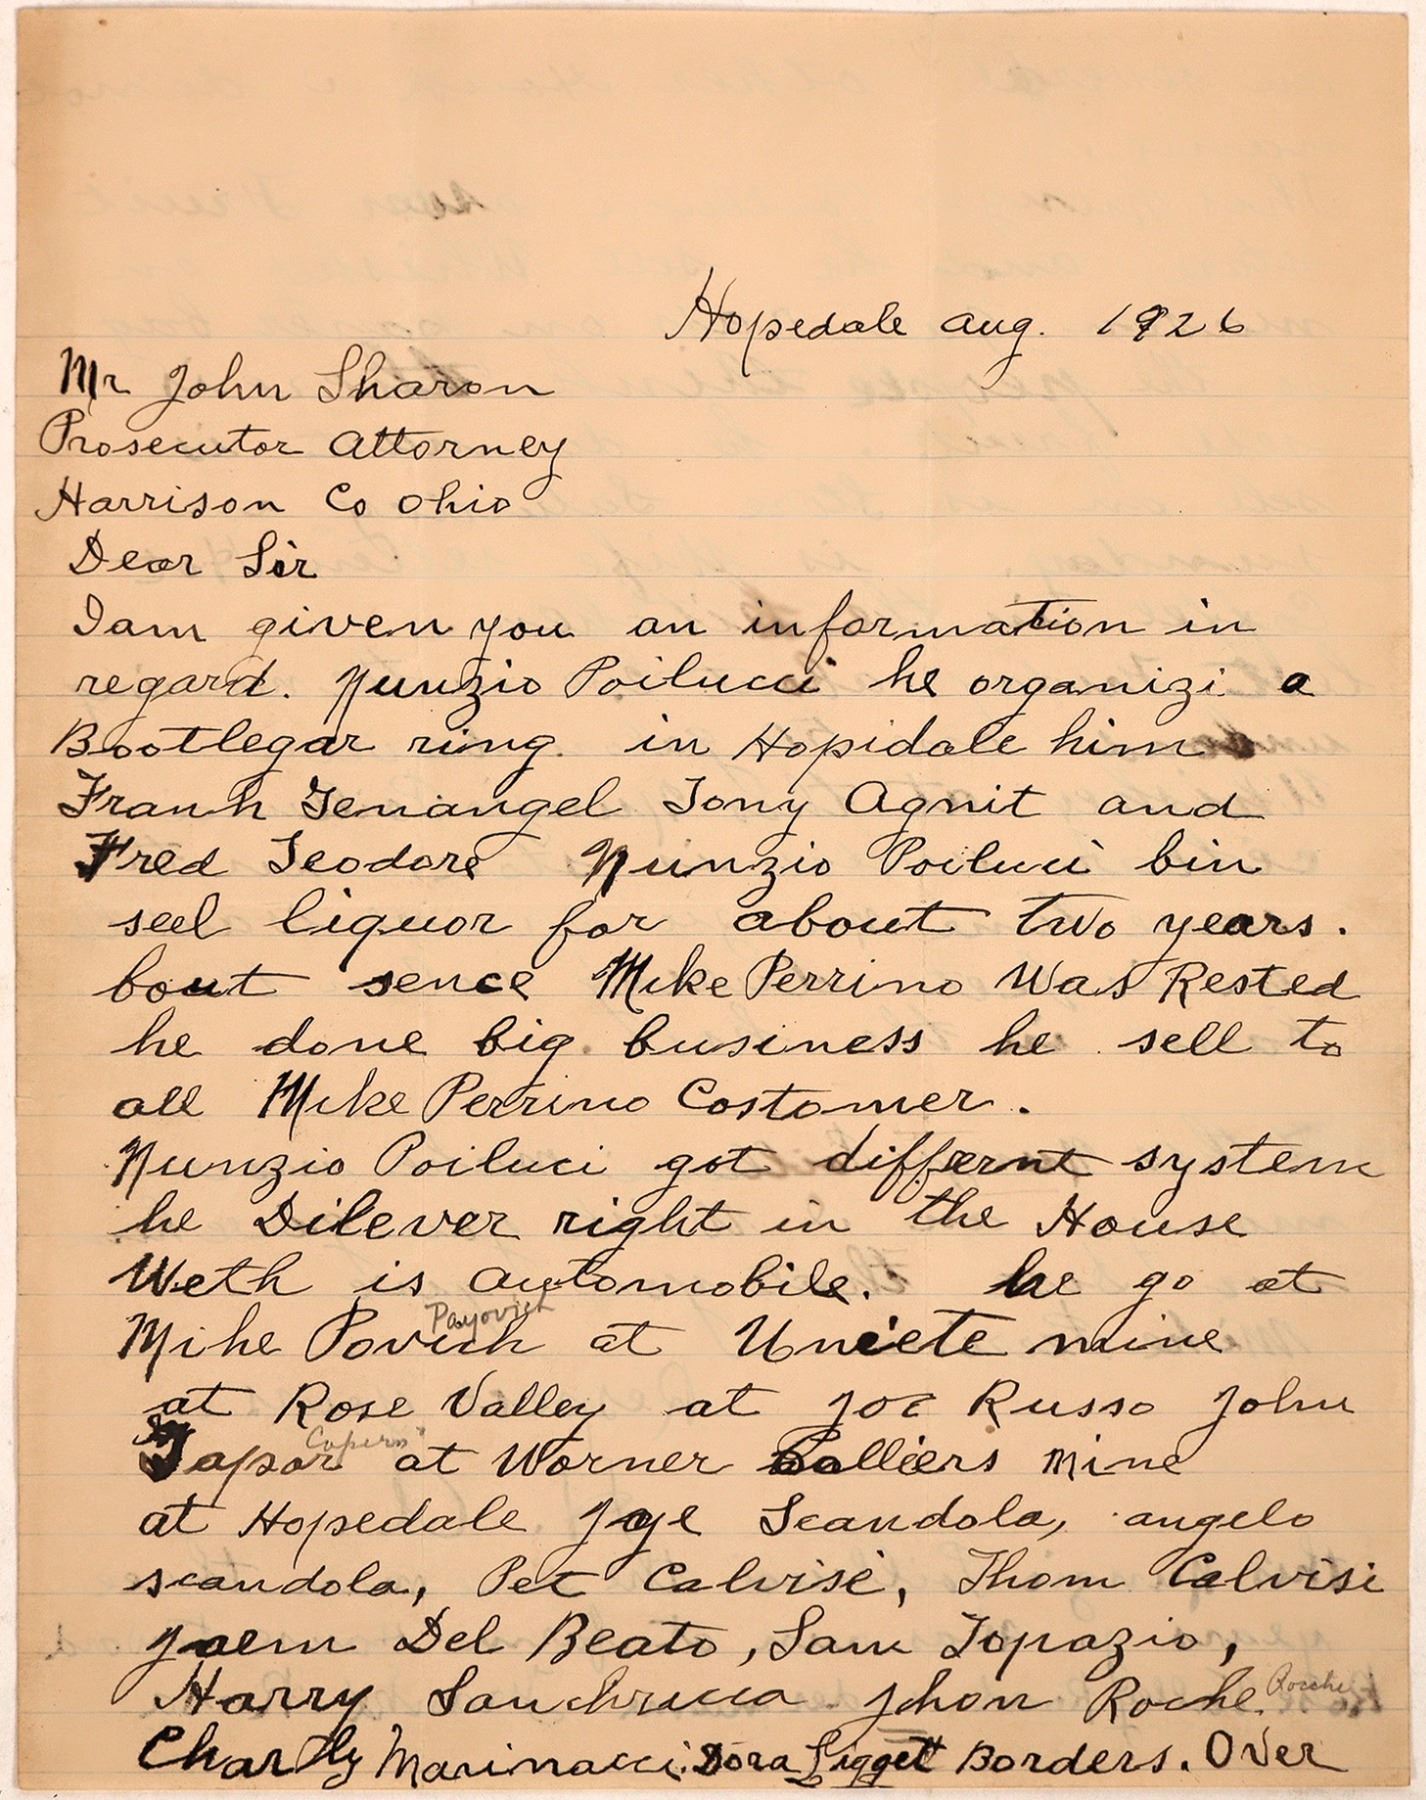 Hopedale Aug. 1926
Mr John Sharon
Prosecutor Attorney
Harrison Co Ohio
Dear Sir
I am given you an information in
regard. Nunzio Poilucci he organizi a
Bootlegar ring. in Hopidale him
Frank Genangel Tony Agnit and
Fred Teodore Nunzio Poiluci bin
seel liquor for about two years.
bout sence Mike Perrino Was Rested
he done big business he sell to
all Mike Perrino Costomer.
Nunzio Poiluci got differnt system
he Dilever right in the House
Weth is automobile. he go at
Payovich
Mike Povich at Uniete mine
at Rose Valley at Joe Russo John
Capern
Tapar at Worner Colliers Mine
at Hopedale Joye Scandola, angelo
scandola, Pet Calvise, Thom Calvisi
Joem Del Beato, Sam Topazio,
Harry Sanchricca Jhon Roche. Rocchi
Charlly Marinacci. Dora Liggett Borders. Over